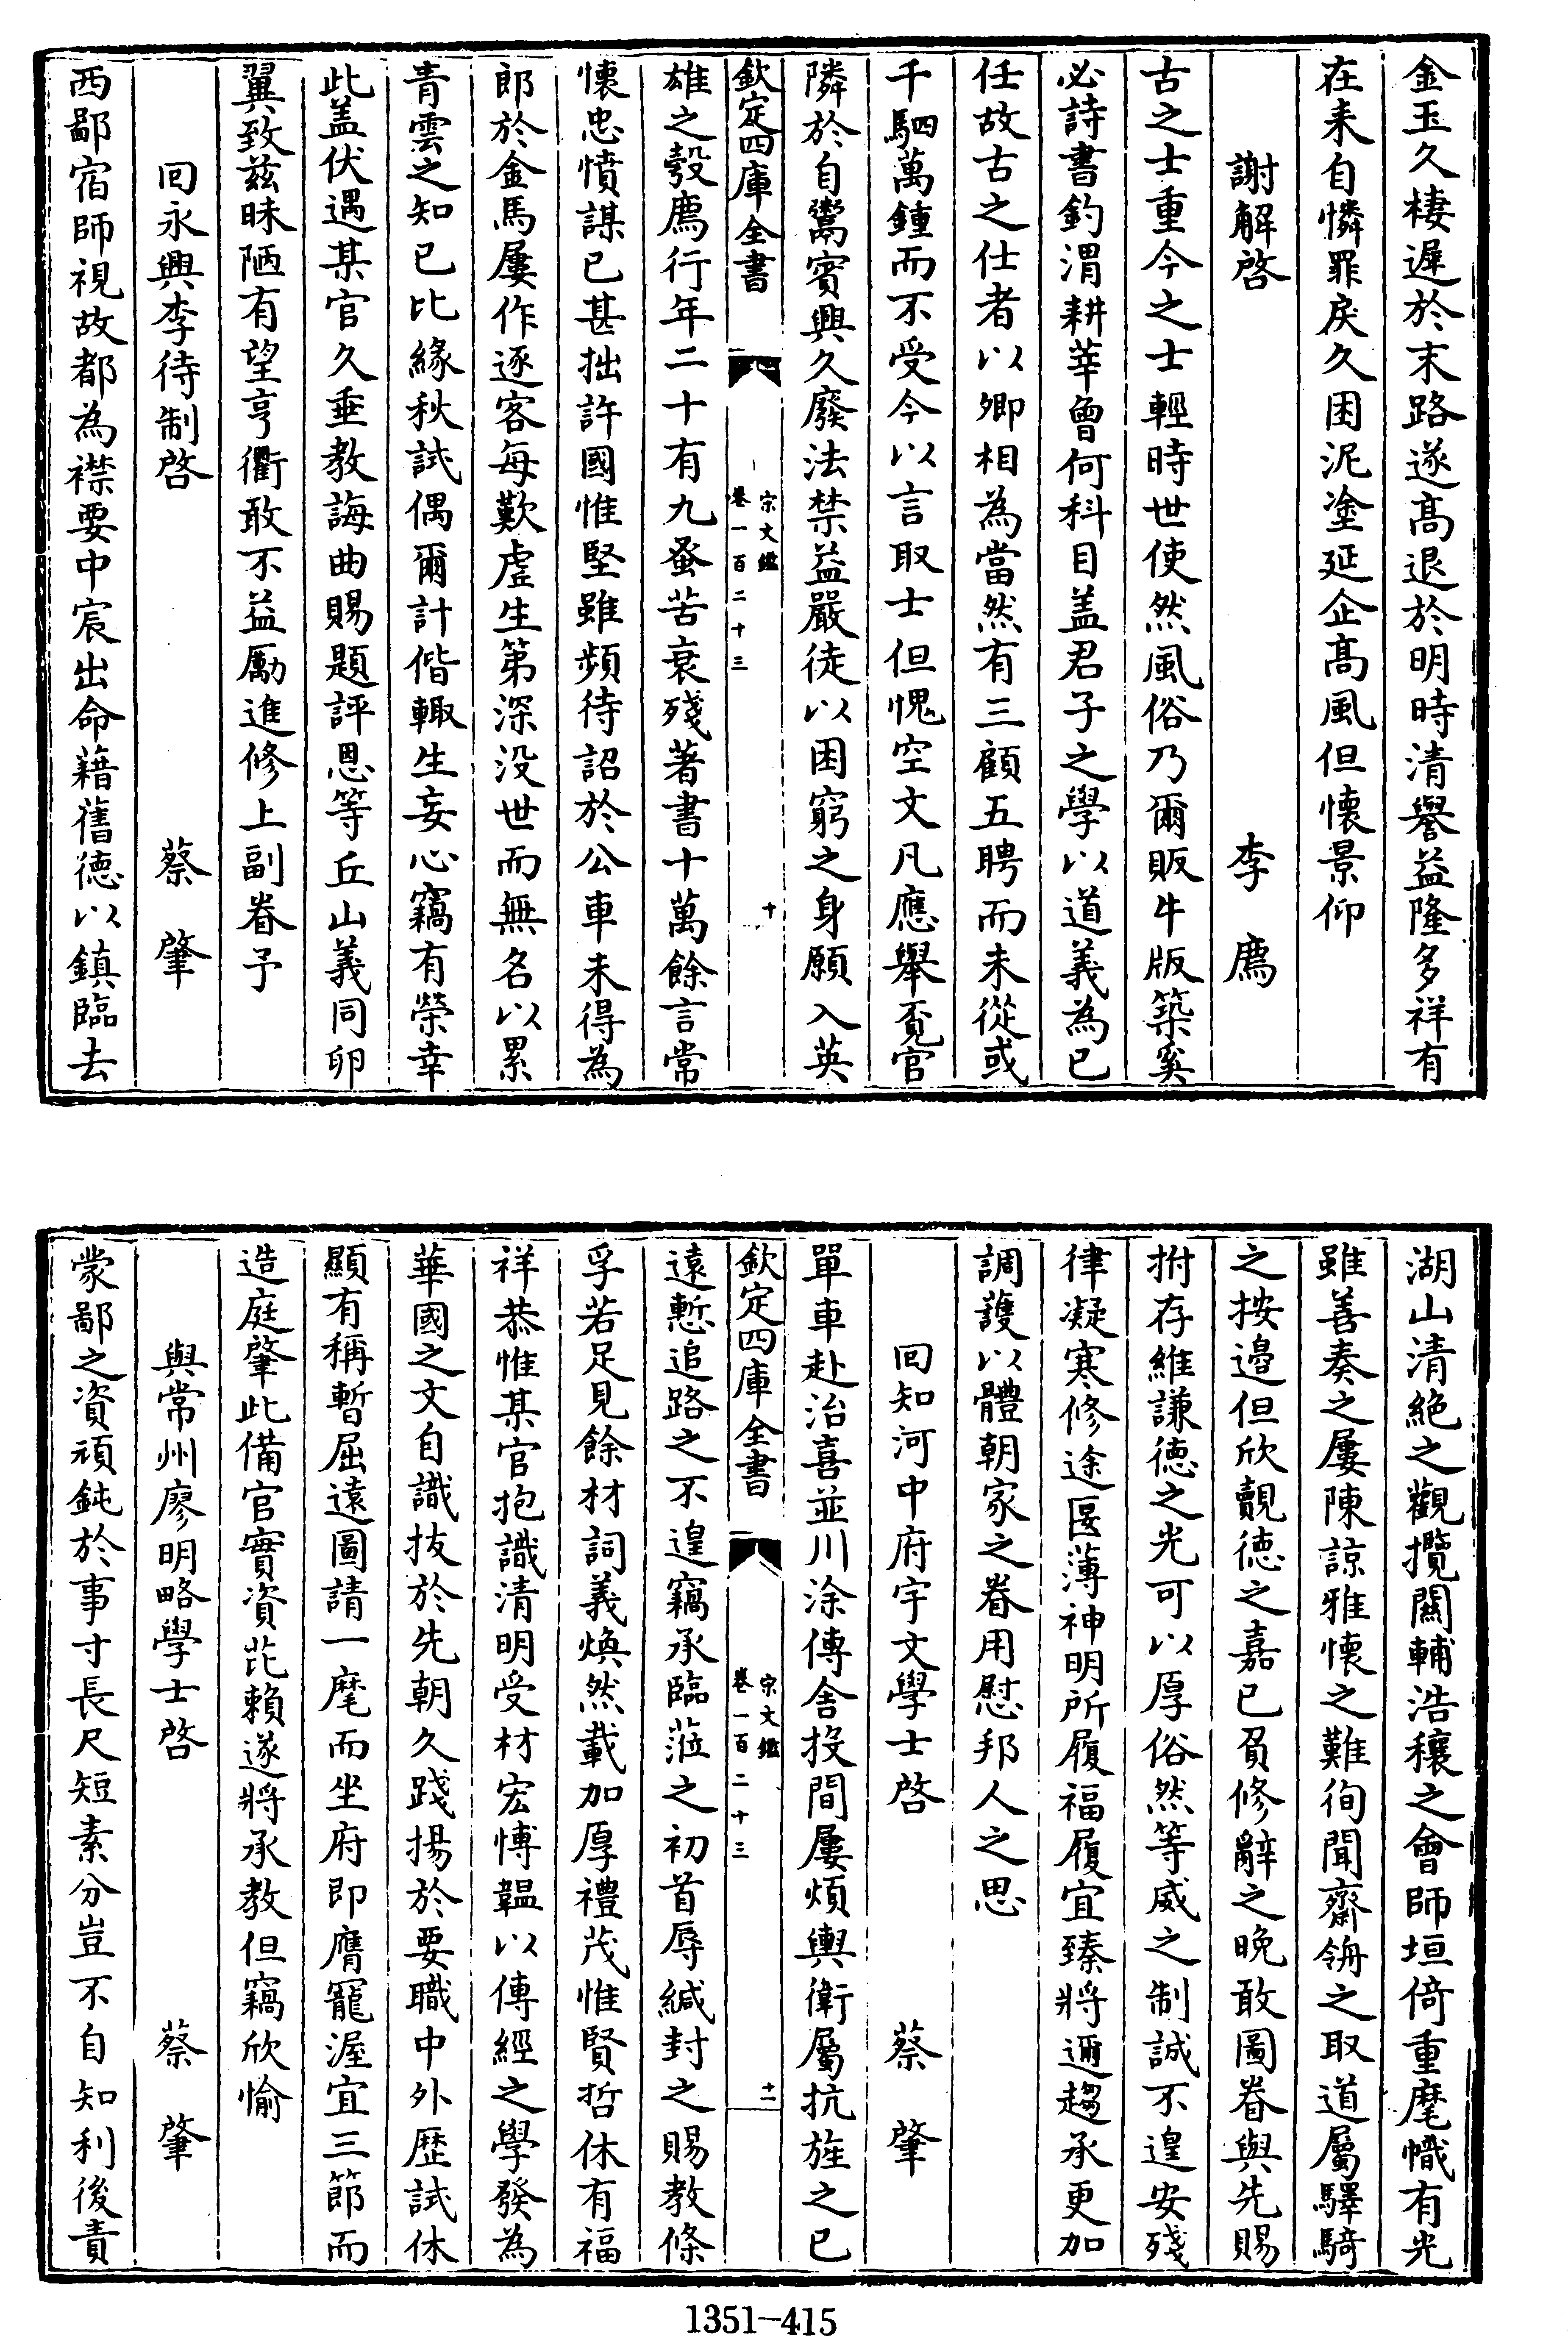 金玉久棲遲於末路遂高退於明時清譽益隆多祥有
在耒自憐罪戾久困泥塗延企髙風但懷景仰
謝解啓　李廌
古之士重今之士輕時世使然風俗乃爾販牛版築奚
必詩書釣渭耕莘曾何科目盖君子之學以道義為已
任故古之仕者以卿相為當然有三顧五聘而未從或
千駟萬鍾而不受今以言取士但愧空文凡應舉覔官
隣於自鬻賓興久廢法禁益嚴徒以困窮之身願入英
欽定四庫全書　宋文鑑　卷一百二十三　十
雄之彀廌行年二十有九蚤苦衰殘著書十萬餘言常
懷忠憤謀已甚拙許國惟堅雖頻待詔於公車未得為
郎於金馬屢作逐客每歎虗生第深没世而無名以累
青雲之知已比緣秋試偶爾計偕輙生妄心竊有榮幸
此盖伏遇某官久垂教誨曲賜題評恩等丘山義同卵
翼致兹昧陋有望亨衢敢不益厲進修上副眷予
回永興李待制啓　蔡肇
西鄙宿師視故都為襟要中宸出命藉舊徳以鎮臨去
湖山清絶之觀攬關輔浩穰之會師垣倚重麾幟有光
雖善奏之屢陳諒雅懷之難徇聞齋舲之取道屬驛騎
之按邉但欣覿徳之嘉已負修辭之晚敢圖眷與先賜
拊存維謙徳之光可以厚俗然等威之制誠不遑安殘
律凝寒修途匽薄神明所履福履宜臻將邇趨承更加
調護以體朝家之眷用慰邦人之思
回知河中府宇文學士啓　蔡肇
單車赴治喜並川涂傳舍投間屢煩輿衛屬抗旌之已
欽定四庫全書　宋文鑑　卷一百二十三　十一
遠慙追路之不遑竊承臨蒞之初首辱緘封之賜教條
孚若足見餘材詞義煥然載加厚禮茂惟賢哲休有福
祥恭惟某官抱識清明受材宏博韞以傳經之學發為
華國之文自識拔於先朝久踐揚於要職中外歴試休
顯有稱暫屈遠圖請一麾而坐府即膺寵渥宜三節而
造庭肇此備官實資芘賴遂將承教但竊欣愉
與常州廖明略學士啓　蔡肇
蒙鄙之資頑鈍於事寸長尺短素分豈不自知利後責
1351-415